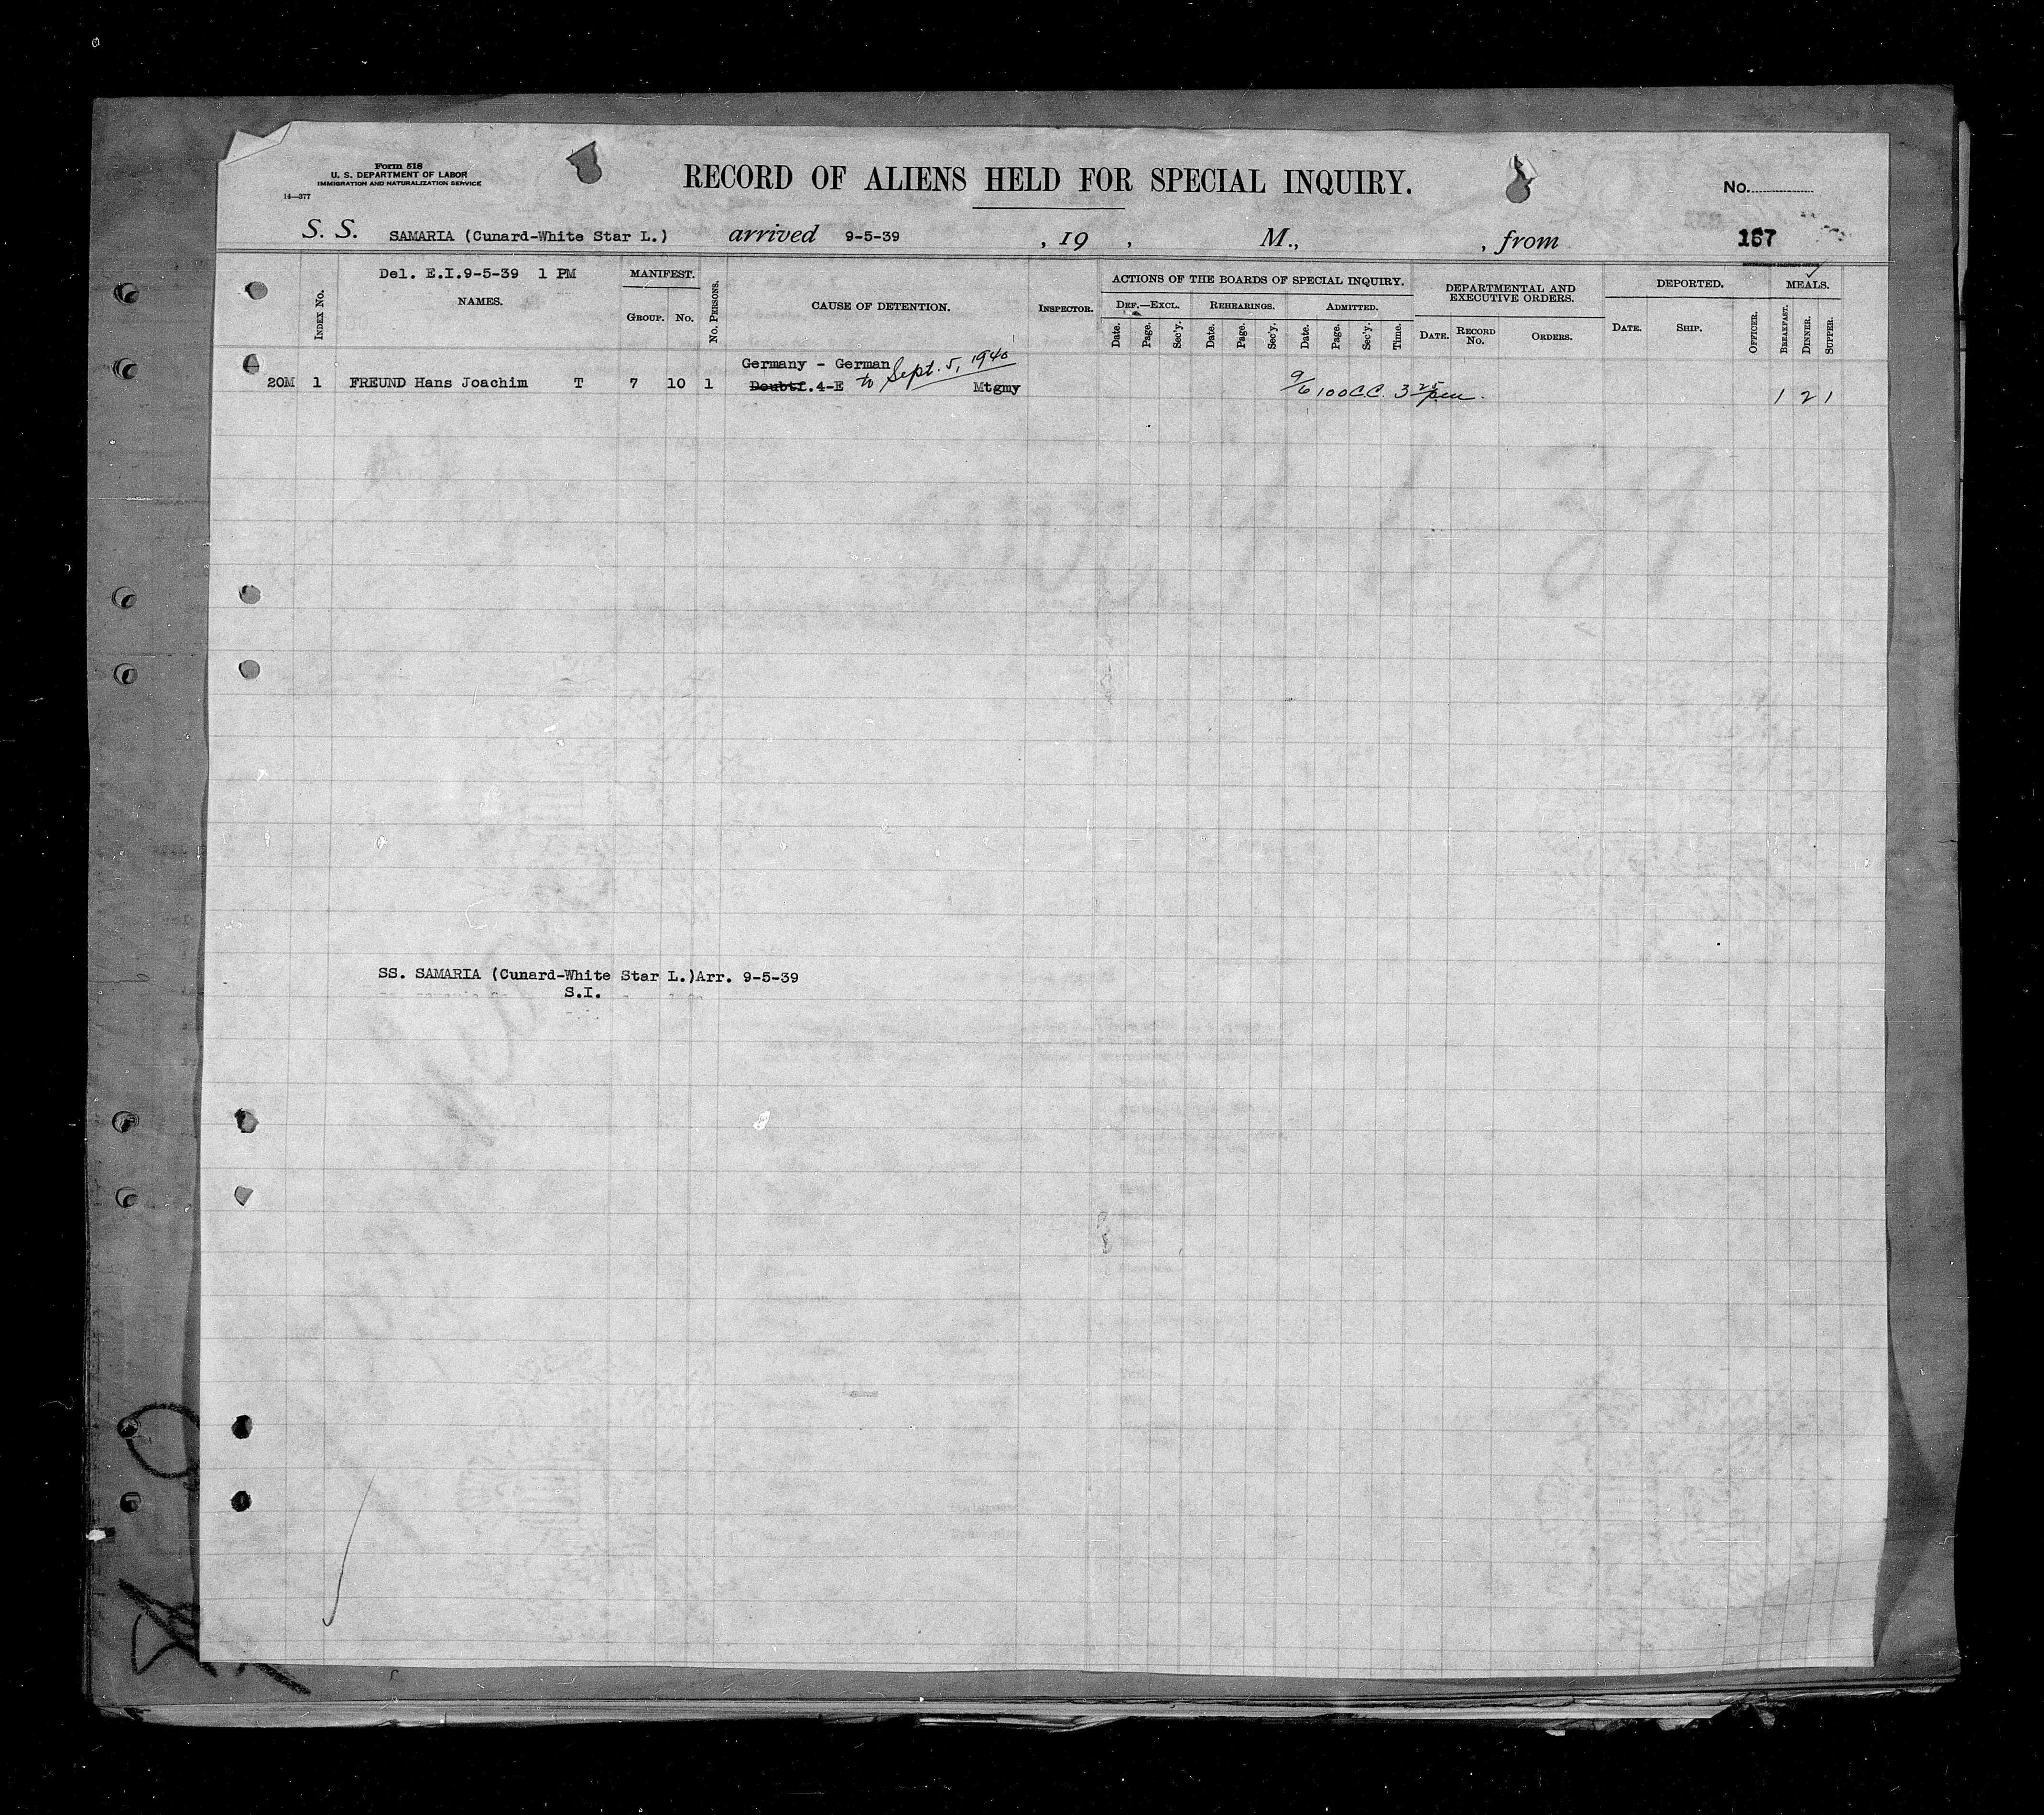 Form 518
U. S. DEPARTMENT OF LABOR
IMMIGRATION AND NATURALIZATION SERVICE
14—377
RECORD OF ALIENS HELD FOR SPECIAL INQUIRY.
No.
S. S. SAMARIA (Cunard-White Star L.) arrived 9-5-39 , 19 , M., , from 167
Del. E.I.9-5-39 1 PM
INDEX No.
NAMES.
MANIFEST.
GROUP. No.
No. PERSONS.
CAUSE OF DETENTION.
INSPECTOR.
ACTIONS OF THE BOARDS OF SPECIAL INQUIRY.
DEF.—EXCL. REHEARINGS. ADMITTED.
Date. Page. Sec'y. Date. Page. Sec'y. Date. Page. Sec'y. Time.
DEPARTMENTAL AND
EXECUTIVE ORDERS.
DATE. RECORD No. ORDERS.
DEPORTED.
DATE. SHIP. OFFICER.
MEALS.
BREAKFAST. DINNER. SUPPER.
Germany - German
20M 1 FREUND Hans Joachim T 7 10 1 Doubtf.4-E to Sept. 5, 1940 Mtgmy 9/6 100 C.C. 3 25 pm. 1 2 1
SS. SAMARIA (Cunard-White Star L.)Arr. 9-5-39
S.I.